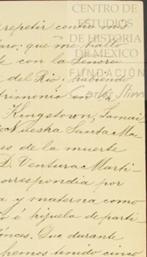 CENTRO DE
ESTUDIOS
DE HISTORIA
DE MEXICO
FUNDACIÓN
Carlos Slim
repetir contra
que me hallo
e con la Señora
del Rio habiendo
trimonio en
Kingstown, Jamai
Nuestra Santa Ma
es de la muerte
D. Ventura Marti
orrespondia por
a y materna como
o é hijuela de parti
onces. Que durante
hemos tenido cinco